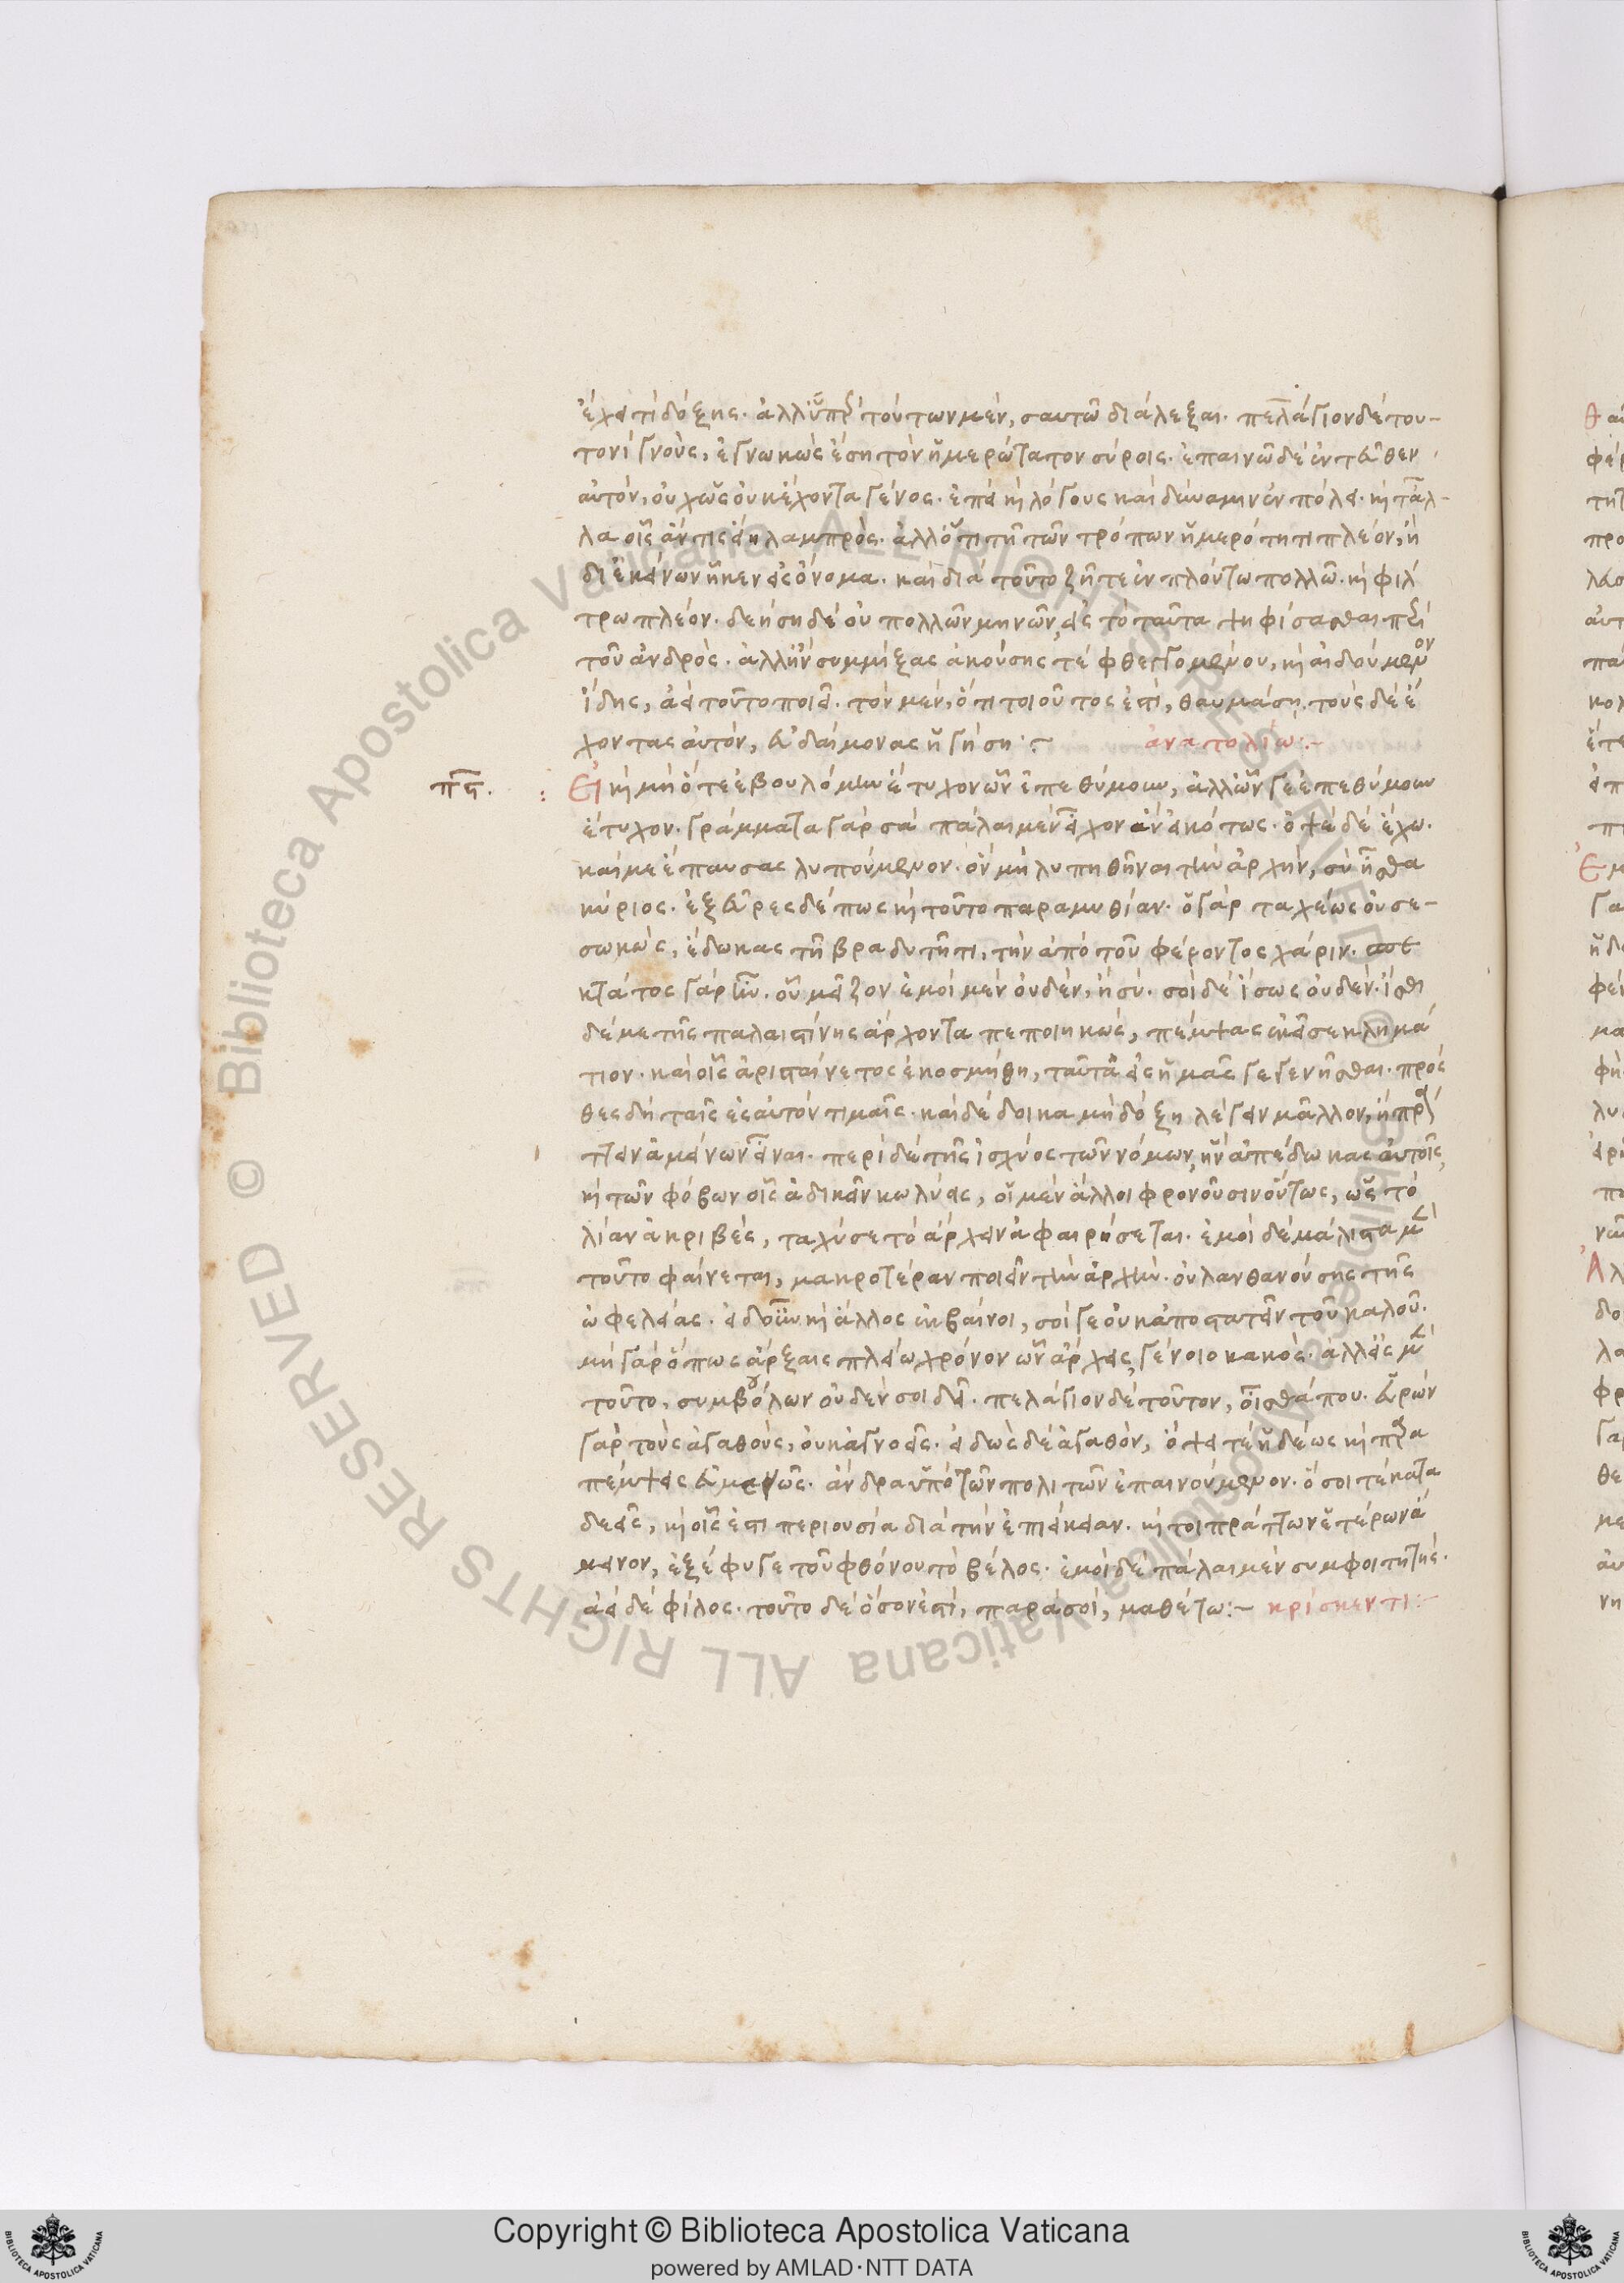 ἔχει τί δόξης. ἀλλ' ὑπὲρ τούτων μέν, σαυτῶ διάλεξαι. πελάγιον δέ του-
τονί γνούς, ἐγνωκώς ἔση τόν ἡμερώτατον σύροις. ἐπαινῶ δέ ἐντεῦθεν
αὐτόν, οὐχ ὡς οὐκ ἔχοντα γένος. ἐπεί κὶ λόγους καί δύναμιν ἐν πόλει. κὶ τἄλ-
λα οἷς ἄν τις εἴη λαμπρός. ἀλλ' ὅτι τῆ τῶν τρόπων ἡμερότητι πλέον, ἤ
δι' ἐκείνων ἧκεν εἰς ὄνομα. καί διά τοῦτο ζῆ τε ἐν πλούτω πολλῶ. κὶ φίλ
τρω πλέον. δεήση δέ οὐ πολλῶν μηνῶν, εἰς τό ταῦτα ψηφίσασθαι περί
τοῦ ἀνδρός. ἀλλ' ἤν συμμίξας ἀκούσης τέ φθεγγομένου, κὶ αἰδούμενον
ἴδης, ἀεί τοῦτο ποιεῖ. τόν μέν, ὅτι τοιοῦτος ἐστί, θαυμάση. τούς δέ ἔ
χοντας αὐτόν, εὐδαίμονας ἡγήση :~ ἀνατολίω :~
πϛ. : Εἰ κὶ μή ὅτε ἐβουλόμην ἔτυχον ὧν ἐπεθύμουν, ἀλλ' ὧν γε ἐπεθύμουν
ἔτυχον. γράμματα γάρ σά πάλαι μέν εἶχον ἄν εἰκότως. ὀψέ δέ ἔχω.
καί με ἔπαυσας λυπούμενον. οὗ μή λυπηθῆναι τήν ἀρχήν, σύ ἦσθα
κύριος. ἐξεῦρες δέ πως κὶ τοῦτο παραμυθίαν. ὅ γάρ ταχέως οὐ σε-
σωκώς, ἔδωκας τῆ βραδυτῆτι, τήν ἀπό τοῦ φέροντος χάριν.
κτατος γάρ ἦν. οὗ μεῖζον ἐμοί μέν οὐδέν, ἤ σύ. σοί δέ ἴσως οὐδέν. ἴσθι
δέ με τῆς παλαιστίνης ἄρχοντα πεποιηκώς, πέμψας ἐκεῖσε κλημά
τιον. καί οἷς ἀρισταίνετος ἐκοσμήθη, ταῦτα εἰς ἡμᾶς γεγενῆσθαι. πρόσ
θες δή ταῖς ἐς αὐτόν τιμαῖς. καί δέδοικα μή δόξη λέγειν μᾶλλον, ἤ πρά
ττειν ἀμείνων εἶναι. περί δέ τῆς ἰσχύος τῶν νόμων, ἥν ἀπέδωκας αὐτοῖς,
κὶ τῶν φόβων οἷς ἀδικεῖν κωλύεις, οἱ μέν ἄλλοι φρονοῦσιν οὕτως, ὡς τό
λίαν ἀκριβές, ταχύ σε τό ἄρχειν ἀφαιρήσεται. ἐμοί δέ μάλιστα μέν
τοῦτο φαίνεται, μακροτέραν ποιεῖν τήν ἀρχήν. οὐ λανθανούσης τῆς
ὠφελείας. εἰ δ' οὖν κὶ ἄλλος ἐκβαίνοι, σοί γε οὐκ ἀποστατεῖν τοῦ καλοῦ.
μή γάρ ὅπως ἄρξαις πλείω χρόνον ὧν ἄρχεις, γένοιο κακός. ἀλλ' εἰς μέν
τοῦτο, συμβούλων οὐδέν σοι δεῖ. πελάγιον δέ τοῦτον, οἶσθά που. εὑρών
γάρ τούς ἀγαθούς, οὐκ ἀγνοεῖς. εἰδώς δέ ἀγαθόν, ὄψει τέ ἡδέως κὶ πρα
πέμψεις εὐμενῶς. ἄνδρα ὑπό τῶν πολιτῶν ἐπαινούμενον. ὅσοι τέ κατα
δεεῖς, κὶ οἷς ἐστι περιουσία διά τήν ἐπιείκειαν. κὶ τοι πράττων ἑτέρων ἄ
μεινον, ἐξέφυγε τοῦ φθόνου τό βέλος. ἐμοί δέ πάλαι μέν συμφοιτητής.
ἀεί δέ φίλος. τοῦτο δέ ὅσον ἐστί, παρά σοί, μαθέτω :~ κρίσκεντι :~
Copyright © Biblioteca Apostolica Vaticana
powered by AMLAD·NTT DATA